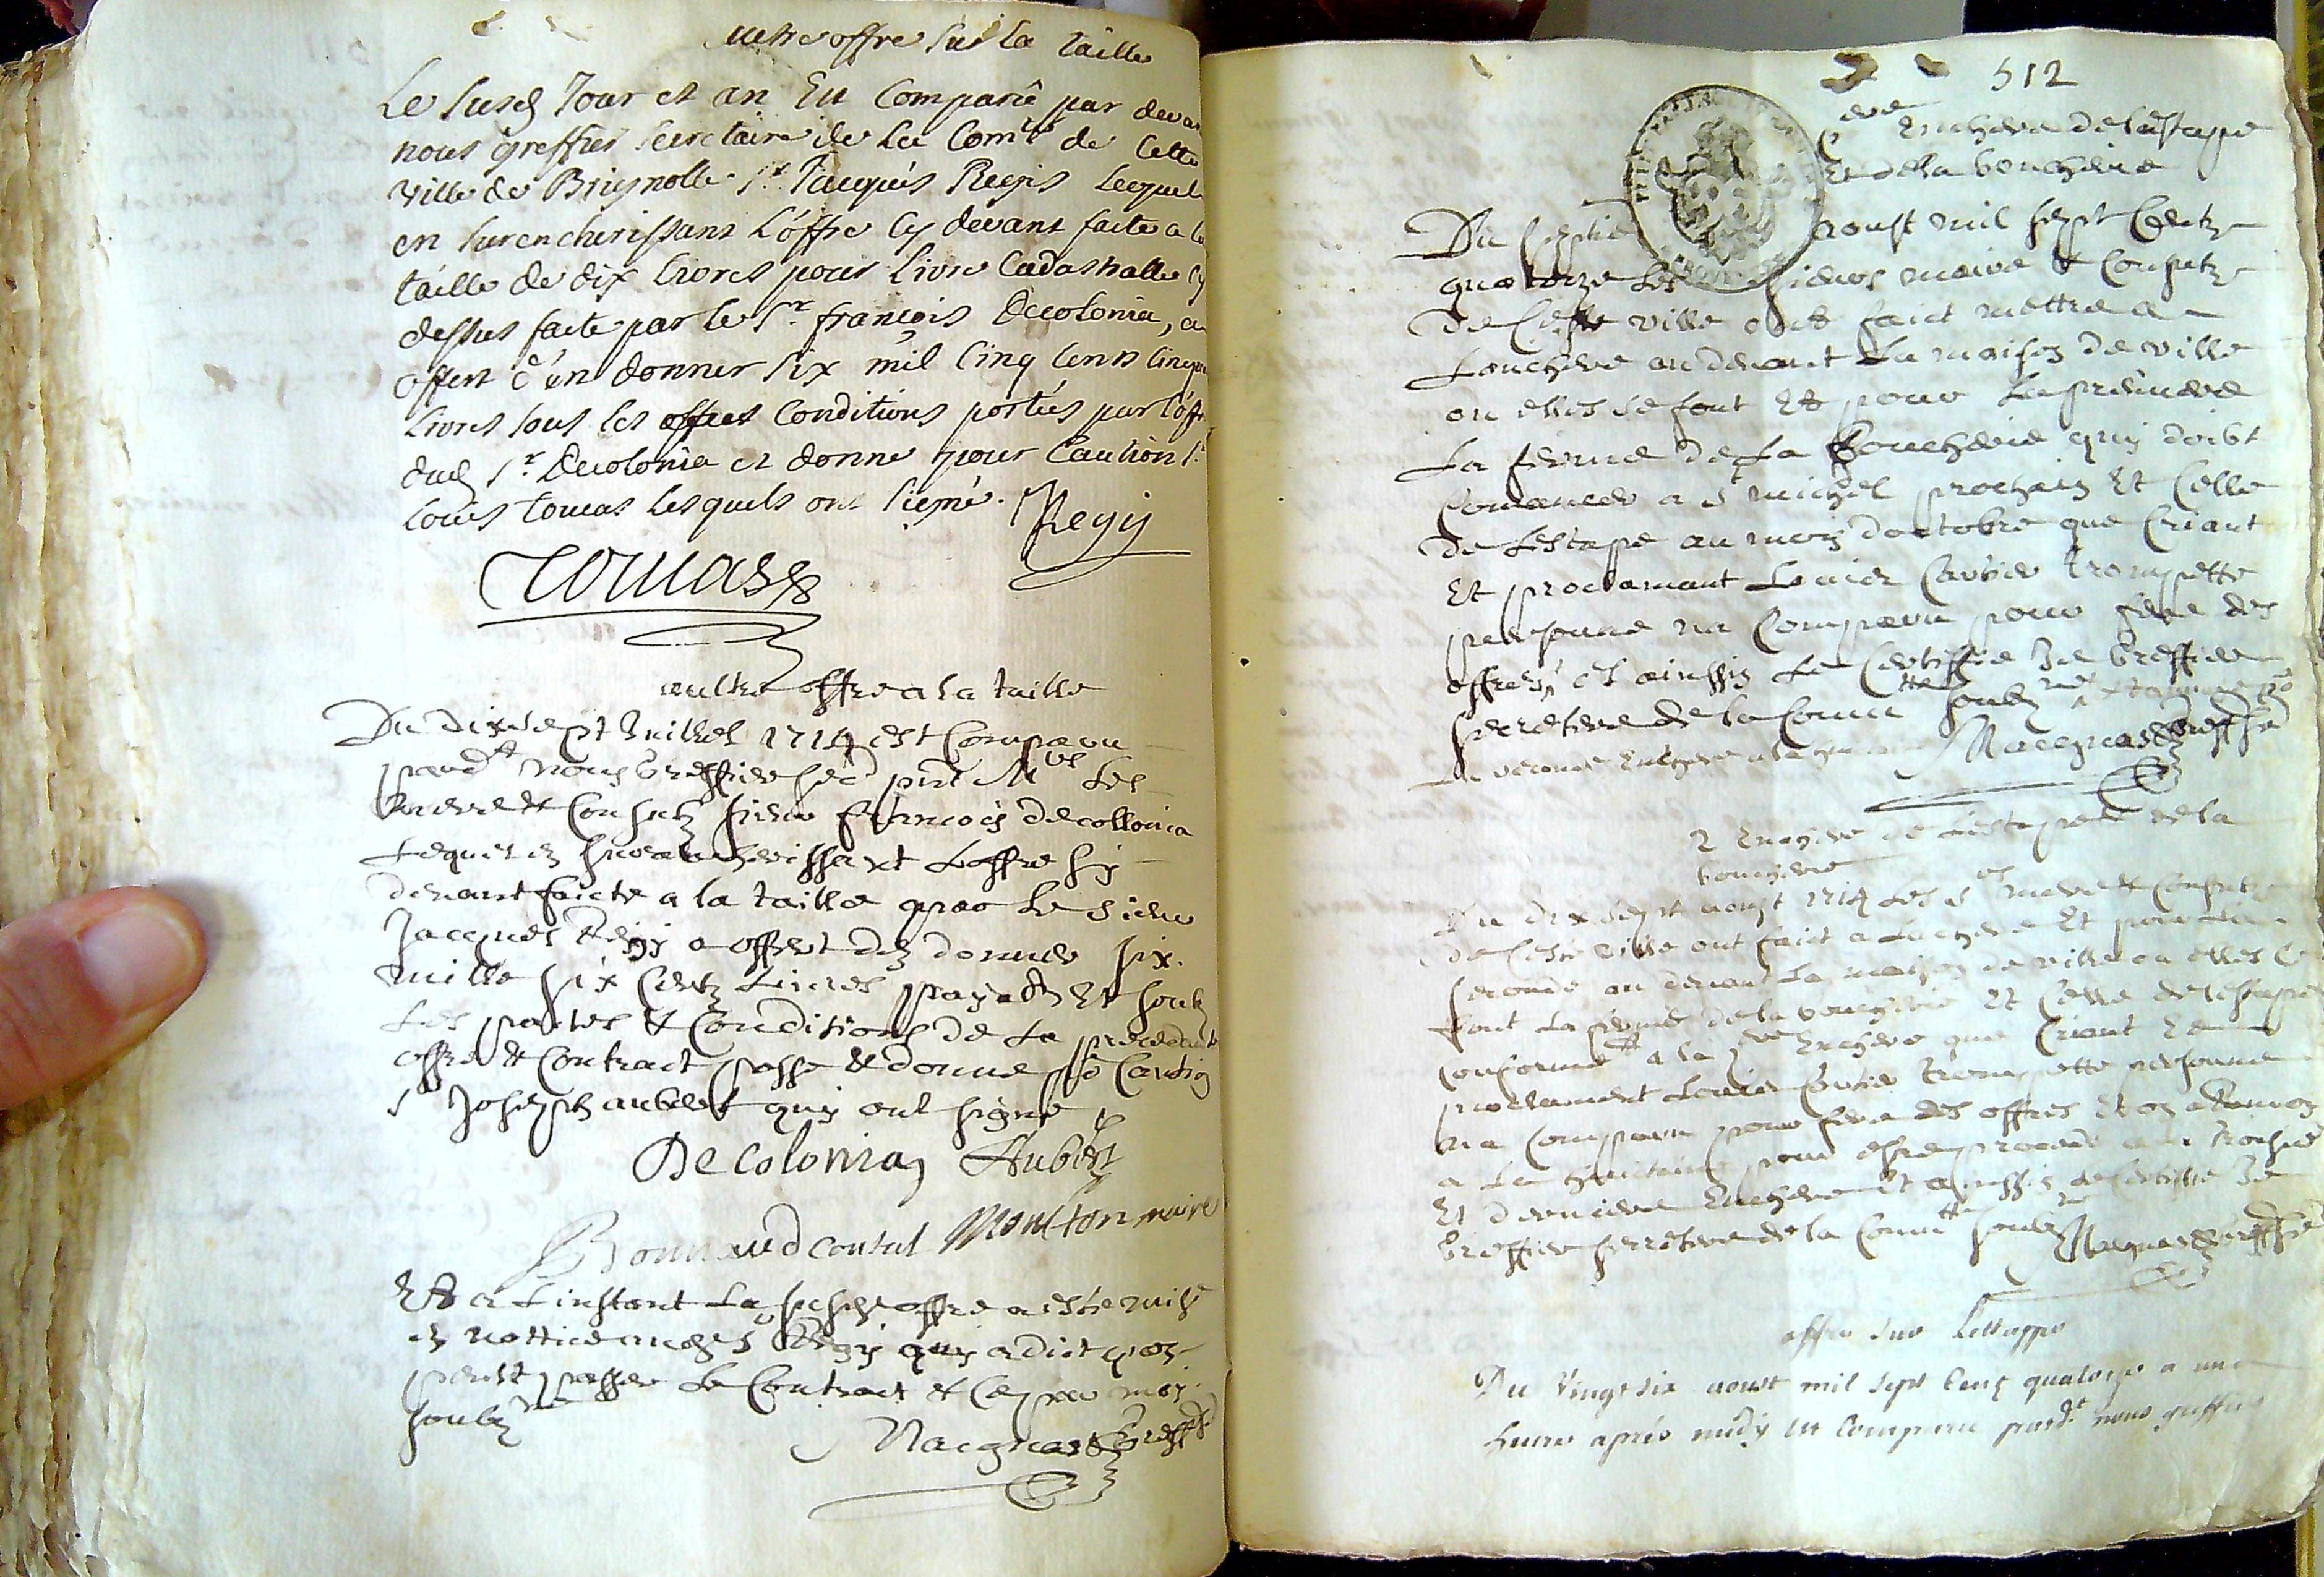 autre offre sur la taille
Le susd Jour et an Est Comparû par deva
nous greffier secretaire de la Com.té de Cette
ville de Brignolle S.r Jacques Regis Lequel
en surencherissant L'offre Cy devant faite a la
taille de dix livres pour livre Cadastralle Cy
dessus faite par le S.r françois Decolonia, a
offert d'en donner six mil Cinq Cents Cinqua
Livres sous les offres Conditions portées par l'offre
dud S.r Decolonia et donne pour Caution S.r
Loüis tomas Lesquels ont signé. Regis
Tomas
aultre offre a la taille
Du dixsept Juillet 1714 est Comparu
pard.t nous Greffier sec.re pnt M.rs Les
Maire & Consulz sieur François decollonia
Lequel en surencherissant Loffre sy
devant faicte a la taille par Le Sieur
Jacques Regis a offert den donner six
mille six Centz Livres payable Et soubz
Les pactes & Conditions de La precedante
offre & Contract passe & donne po Caution
S.r Joseph aubert quy ont signé
Decolonia Aubert
Bonnaud consul Moutton maire
Et a Linstant La susd offre a este mise
en nottice aud S.r Regis quy a dict quon
peult passer Le Contract & Ce par moy
soubz.né
Maignas Greff.r
512
1.ere Enchere de Lestappe
Et de la boucherie
Du septie aoust mil sept Centz
quatorze Les sieurs maire & Consulz
de Ceste ville ont faict mettre a
Lenchere au devant La maison de ville
ou elles se font Et pour La premiere
La ferme de La Boucherie quy doibt
Comancer a St michel prochain Et Celle
de Lestape au mois doctobre que Criant
Et proclamant Louis Caubie trompette
personne na Comparu pour fere des
offres, et ainssin Le Certiffie Je Greffier
secretere de la Com.tte soubz.né
Maignas Greff.r
2 Enchere de Lestappe & de la
boucherie
Du dix sept aoust 1714 Les s.rs maire & Consulz
de Ceste ville ont faict a Lenchere Et pour La
seconde au devant La maison de ville ou elles se
font La ferme de la boucherie Et Celle de Lestape
conforme.tt a la 1.ere Enchere que Criant Et
proclamant Louis Caubie trompette personne
na Comparu pour fere des offres Et on a Ranvoy
a La huictaine pour estre procede a la troisie
Et derniere Enchere Et ainssin Le Certiffie Je
Greffier secretere de la Com.tte soubz.né Maignas Greff.r
offre sur Lettappe
Du Vingt six aoust mil sept Cens quatorze a une
heure après midy est Comparu pard.t nous greffier